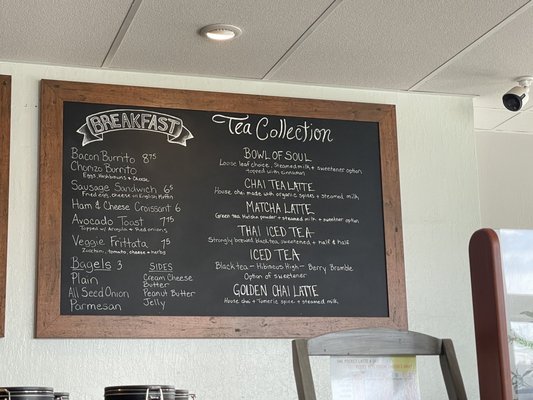 BREAKFAST
Bacon Burrito 8.75
Chorizo Burrito
Eggs, Hashbrowns & Cheese
Sausage Sandwich 6.5
Fried egg, cheese in English Muffin
Ham & Cheese Croissant 6
Avocado Toast 7.75
Topped w/ Arugula & Red onions
Veggie Frittata 7.5
Zucchini, tomato, cheese & herbs
Bagels 3
Plain
All Seed Onion
Parmesan
SIDES
Cream Cheese
Butter
Peanut Butter
Jelly
Tea Collection
BOWL OF SOUL
Loose leaf choice, Steamed milk + sweetener option
topped with cinnamon
CHAI TEA LATTE
House chai made with organic spices + steamed milk
MATCHA LATTE
Green tea Matcha powder + steamed milk + sweetener option
THAI ICED TEA
Strongly brewed black tea, sweetened + half & half
ICED TEA
Black tea - Hibiscus High - Berry Bramble
Option of sweetener
GOLDEN CHAI LATTE
House chai + Tumeric spice + steamed milk